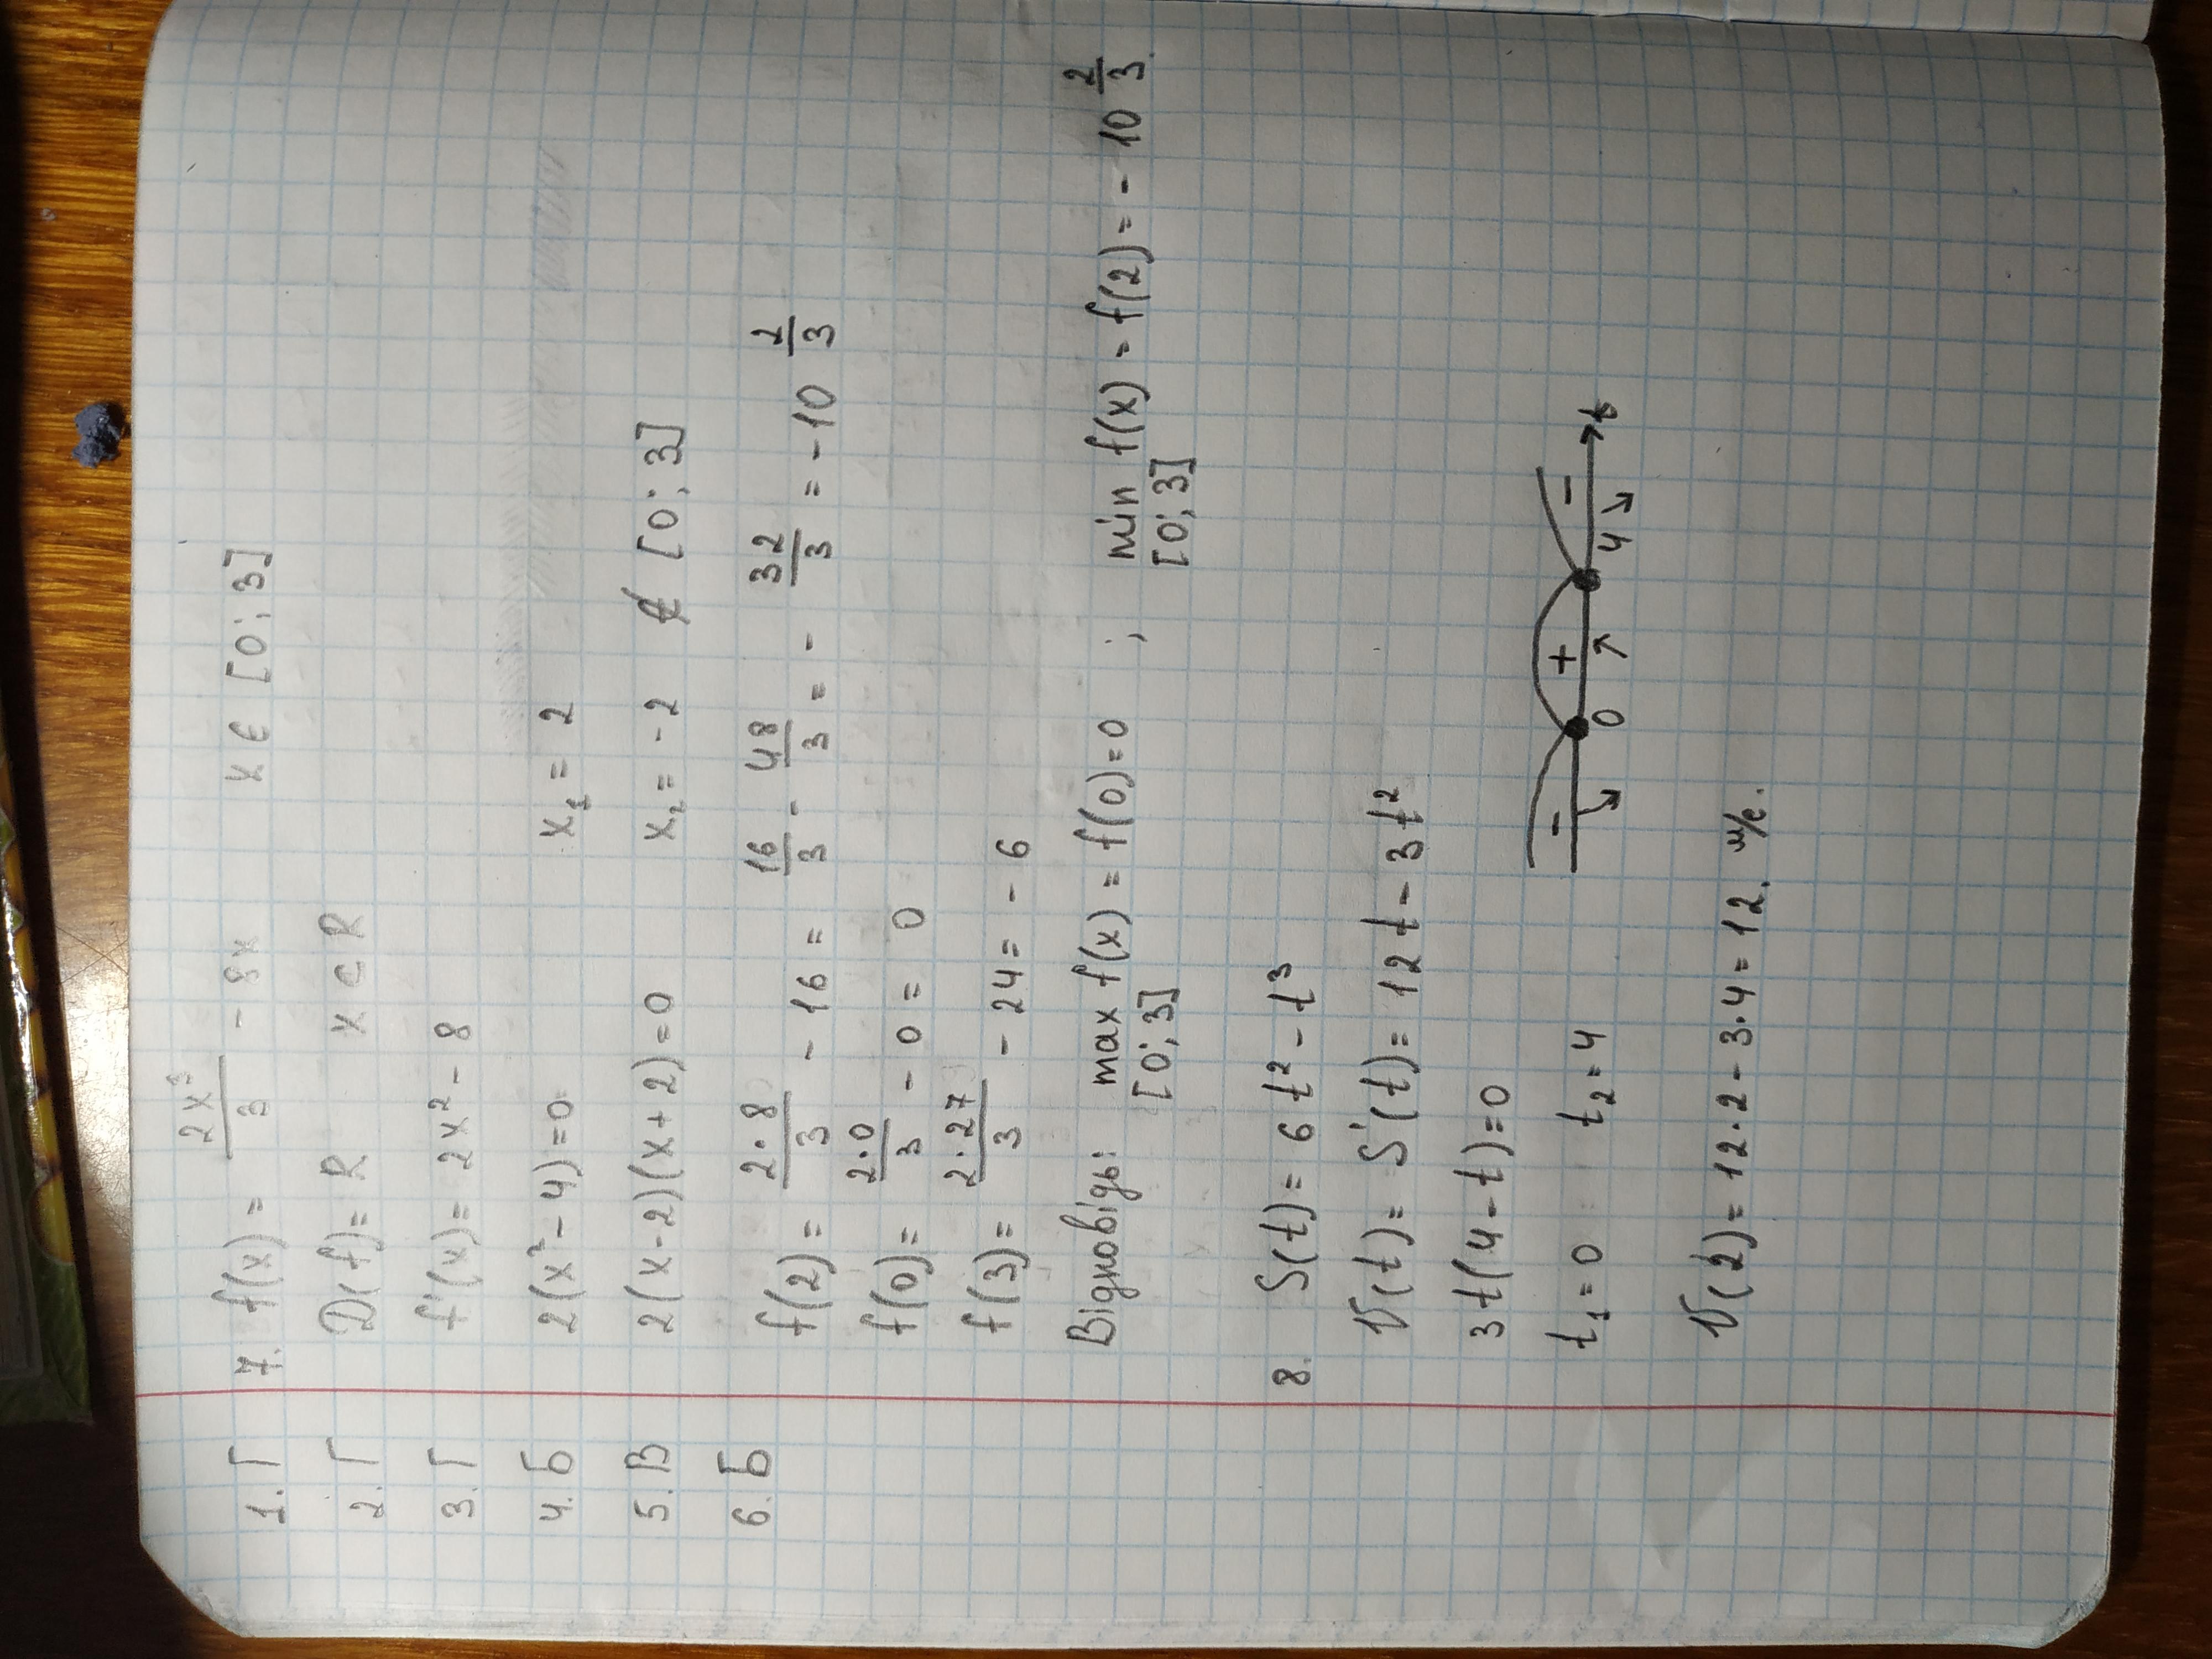 1. Г
2. Г
3. Г
4. Б
5. В
6. Б
7. f(x) = 2x³/3 - 8x x ∈ [0; 3]
D(f) = R x ∈ R
f'(x) = 2x² - 8
2(x² - 4) = 0 x₁ = 2
2(x-2)(x+2) = 0 x₂ = -2 ∉ [0; 3]
f(2) = 2·8/3 - 16 = 16/3 - 48/3 = - 32/3 = -10 2/3
f(0) = 2·0/3 - 0 = 0
f(3) = 2·27/3 - 24 = - 6
Відповідь: max f(x) = f(0) = 0 ; min f(x) = f(2) = - 10 2/3.
[0; 3] [0; 3]
8. S(t) = 6t² - t³
V(t) = S'(t) = 12t - 3t²
3t(4 - t) = 0
t₁ = 0 t₂ = 4
- + -
0 4 t
V(2) = 12·2 - 3·4 = 12. м/с.